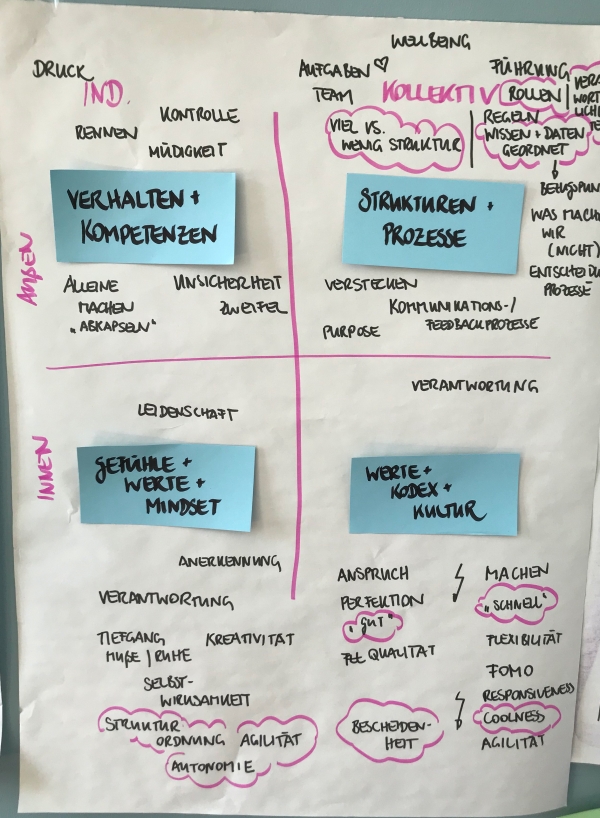 DRUCK
IND.
KONTROLLE
RENNEN
MÜDIGKEIT
VERHALTEN +
KOMPETENZEN
AUßEN
ALLEINE
MACHEN
„ABKAPSELN"
UNSICHERHEIT
ZWEIFEL
WELLBEING
AUFGABEN
TEAM
KOLLEKTIV
FÜHRUNG
ROLLEN
VIEL VS.
WENIG STRUKTUR
REGELN
WISSEN + DATEN
GEORDNET
WAS MACH
WIR
(NICHT)
PROZESSE
STRUKTUREN +
PROZESSE
VERSTECKEN
KOMMUNIKATIONS-/
FEEDBACKPROZESSE
PURPOSE
INNEN
LEIDENSCHAFT
GEFÜHLE +
WERTE +
MINDSET
ANERKENNUNG
VERANTWORTUNG
TIEFGANG
MUßE | RUHE
KREATIVITÄT
SELBST-
WIRKSAMKEIT
STRUKTUR
ORDNUNG
AGILITÄT
AUTONOMIE
VERANTWORTUNG
WERTE +
KODEX +
KULTUR
ANSPRUCH
PERFEKTION
„GUT"
QUALITÄT
BESCHEIDEN-
HEIT
MACHEN
„SCHNELL"
FLEXIBILITÄT
FOMO
RESPONSIVENESS
COOLNESS
AGILITÄT